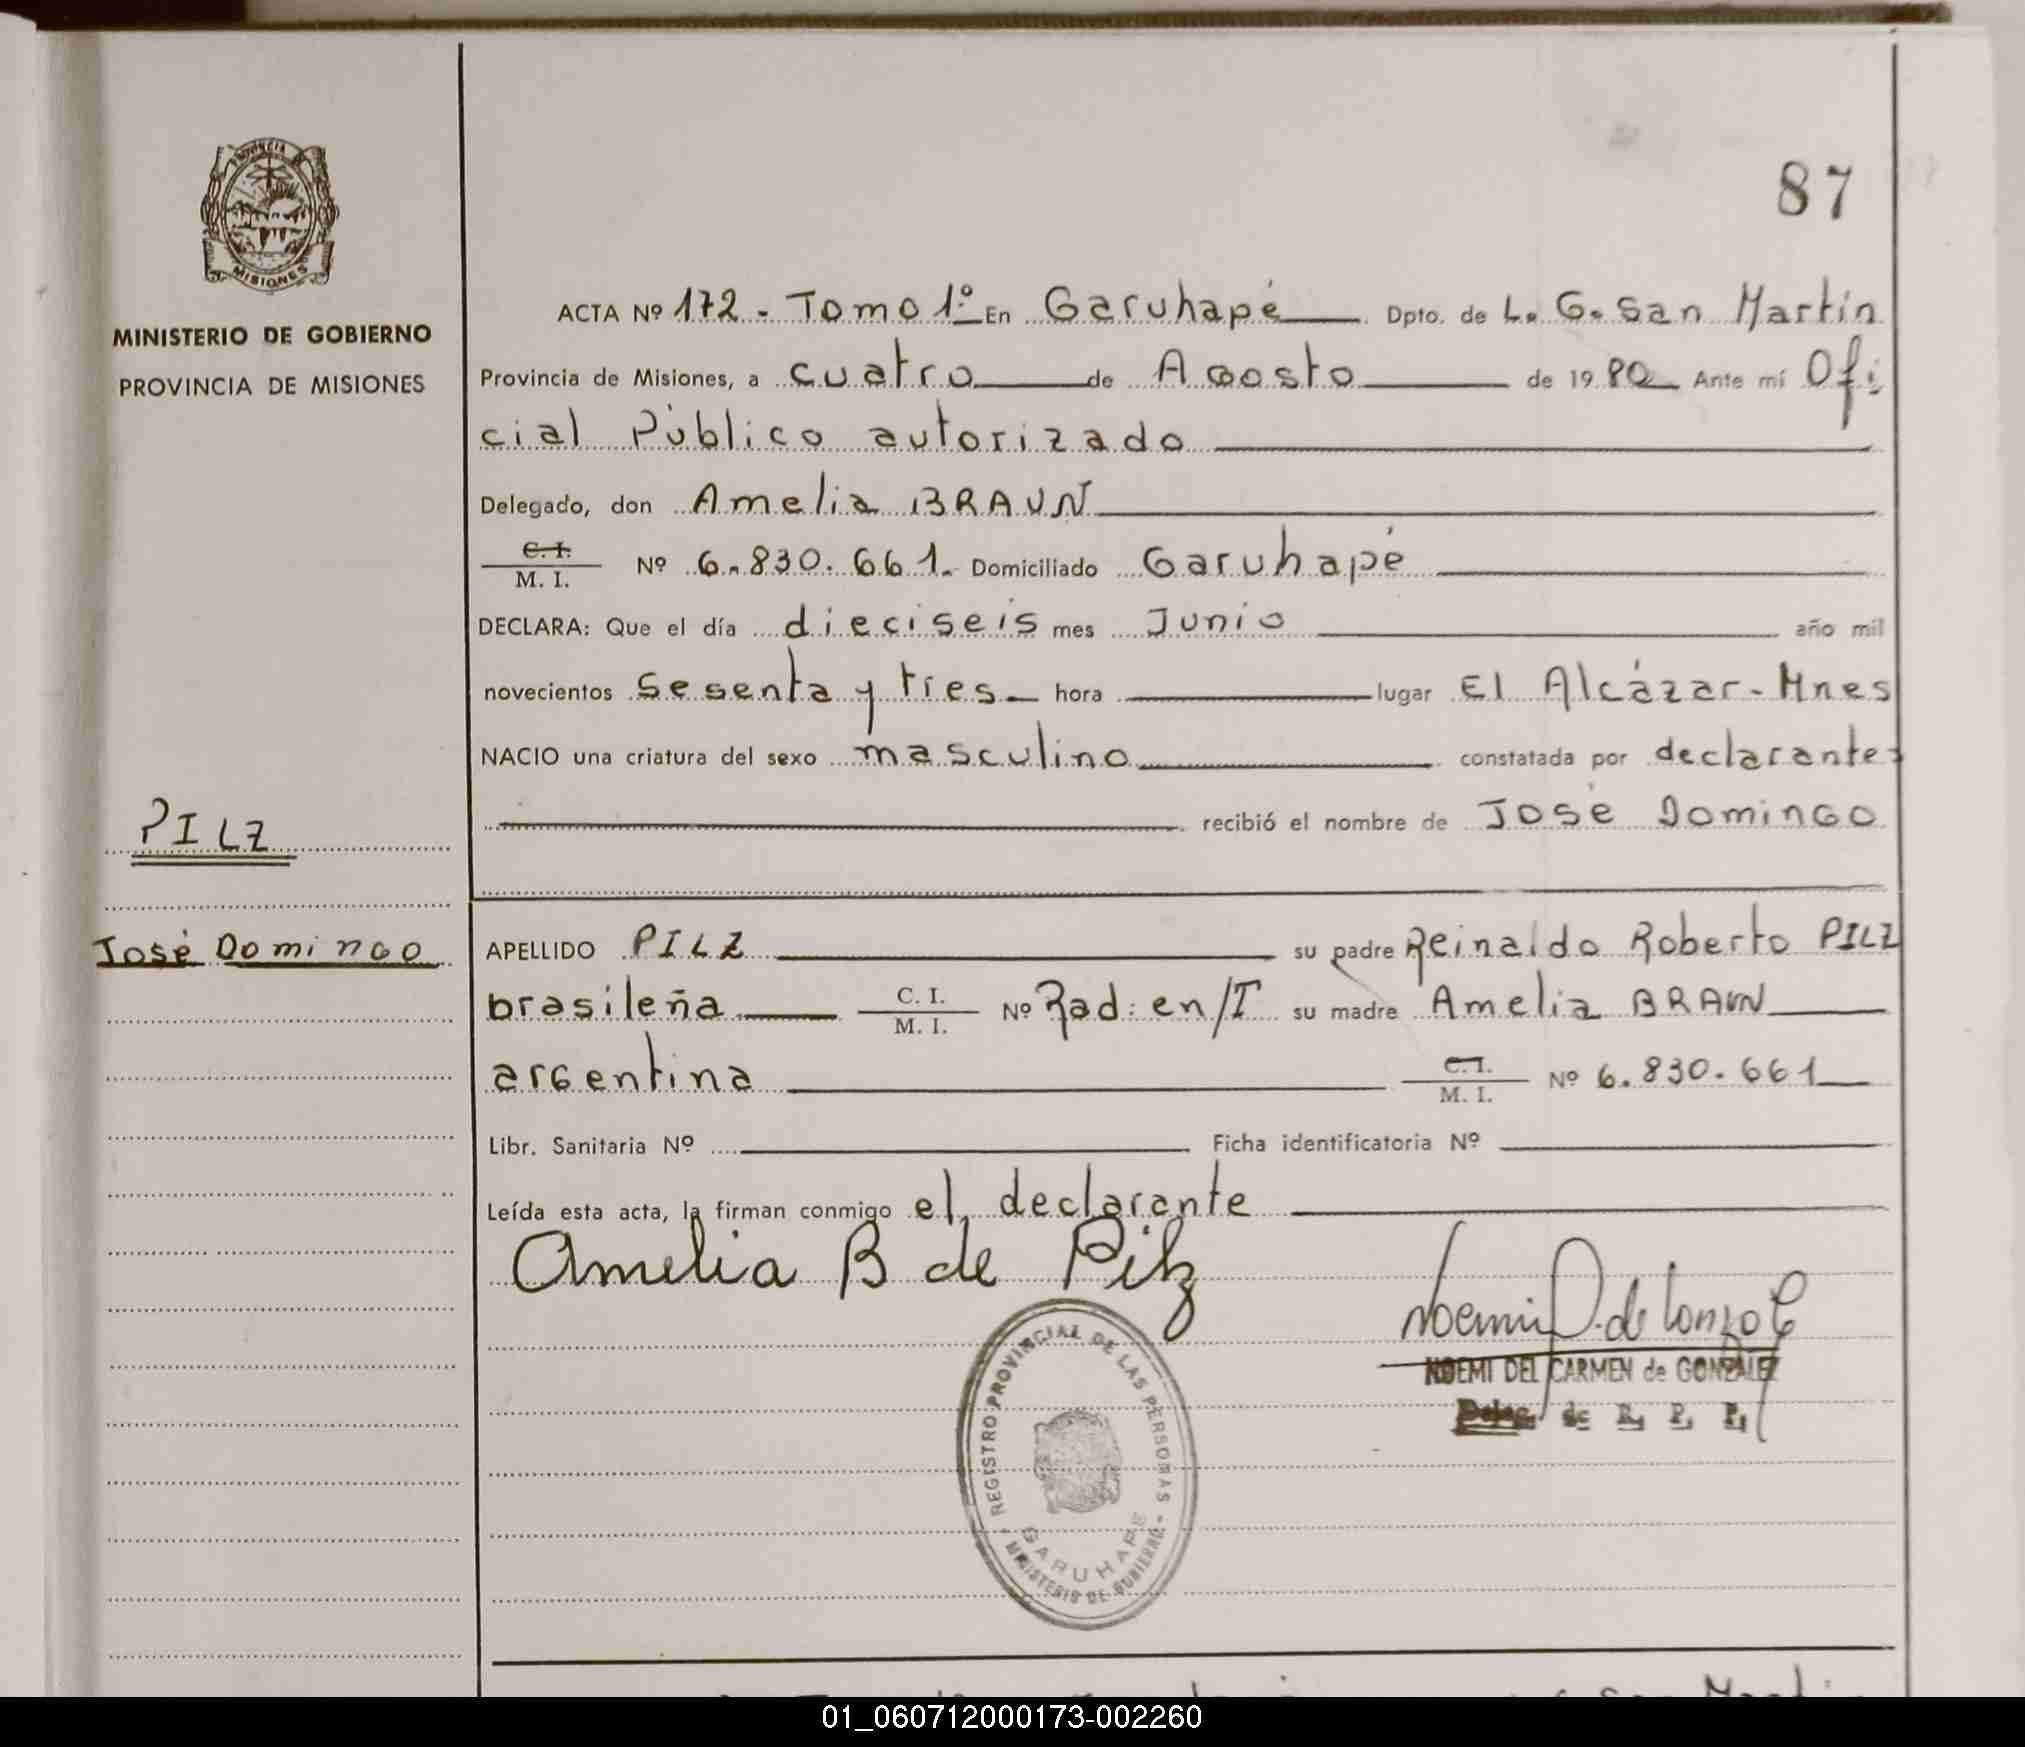 87
PROVINCIA DE
MISIONES
MINISTERIO DE GOBIERNO
PROVINCIA DE MISIONES
ACTA Nº 172 - Tomo 1º En Garuhapé Dpto. de L. G. San Martín
Provincia de Misiones, a cuatro de Agosto de 1980 Ante mí Ofi
cial Público autorizado
Delegado, don Amelia BRAUN
C. I.
M. I. Nº 6.830.661. Domiciliado Garuhapé
DECLARA: Que el día dieciseis mes Junio año mil
novecientos sesenta y tres hora lugar El Alcázar - Mnes
NACIO una criatura del sexo masculino constatada por declarante
recibió el nombre de José Domingo
PILZ
José Domingo
APELLIDO PILZ su padre Reinaldo Roberto PILZ
brasileña C. I.
M. I. Nº Rad: en/T su madre Amelia BRAUN
argentina C. I.
M. I. Nº 6.830.661
Libr. Sanitaria Nº Ficha identificatoria Nº
Leída esta acta, la firman conmigo el declarante
Amelia B de Pilz
NOEMI DEL CARMEN de GONZALEZ
Deleg. de R. P. P.
REGISTRO PROVINCIAL DE LAS PERSONAS
GARUHAPE
MINISTERIO DE GOBIERNO
01_060712000173-002260